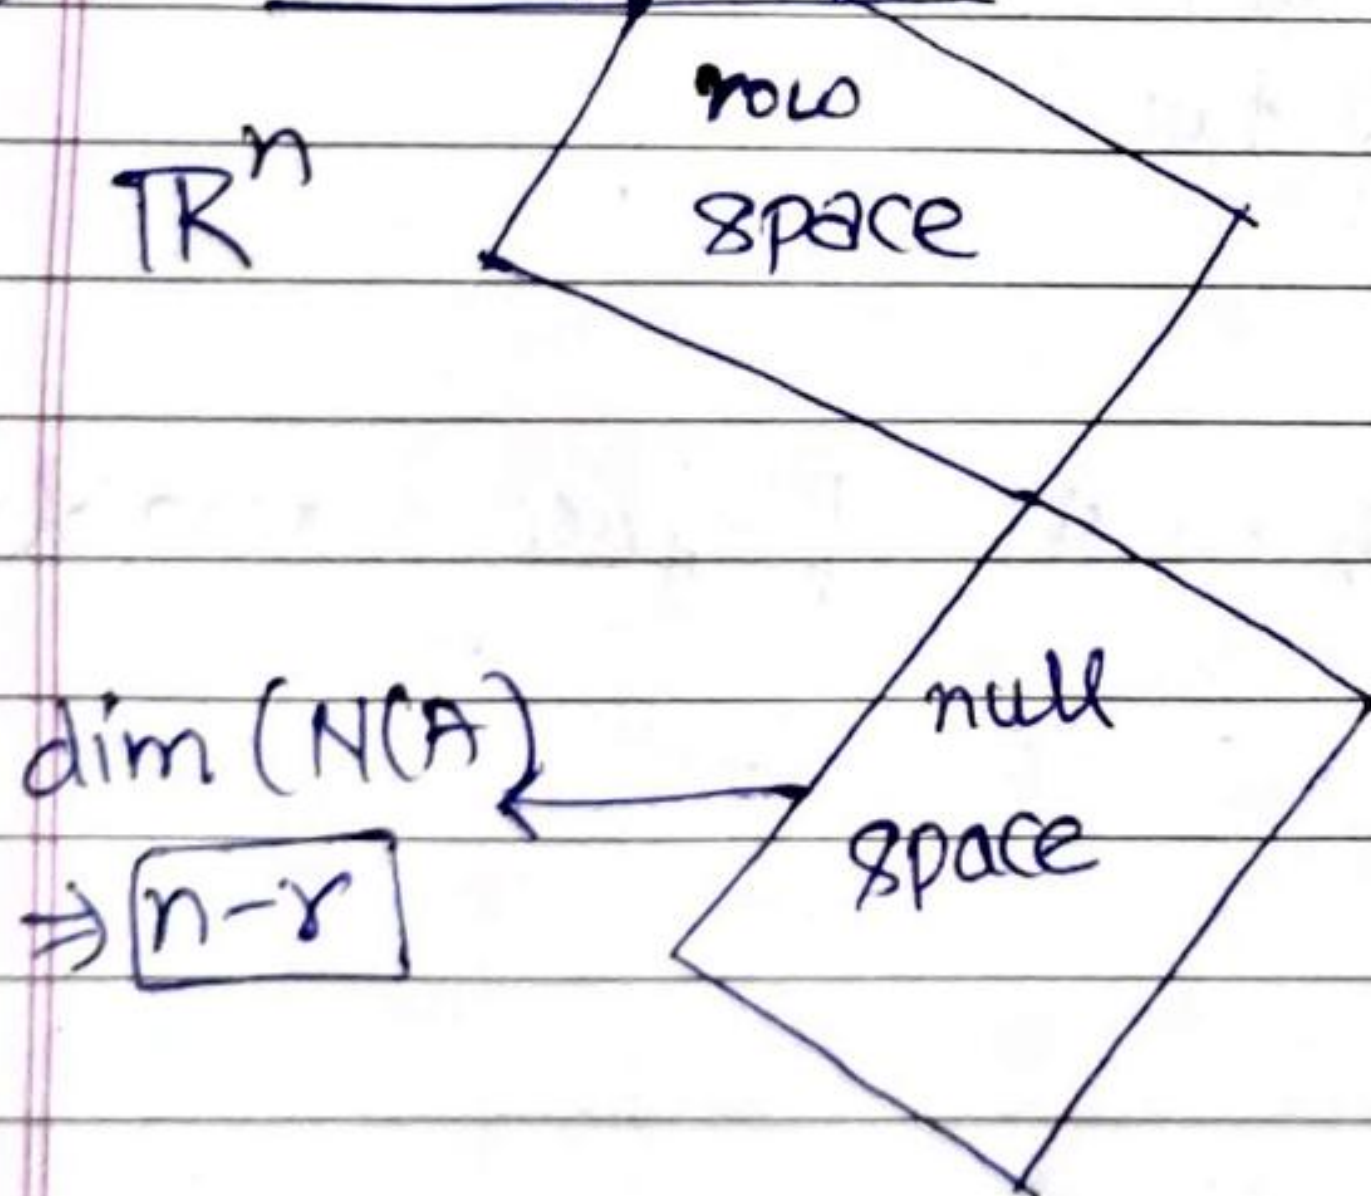 row
space
ℝⁿ
null
space
dim (N(A)
⇒ n-r